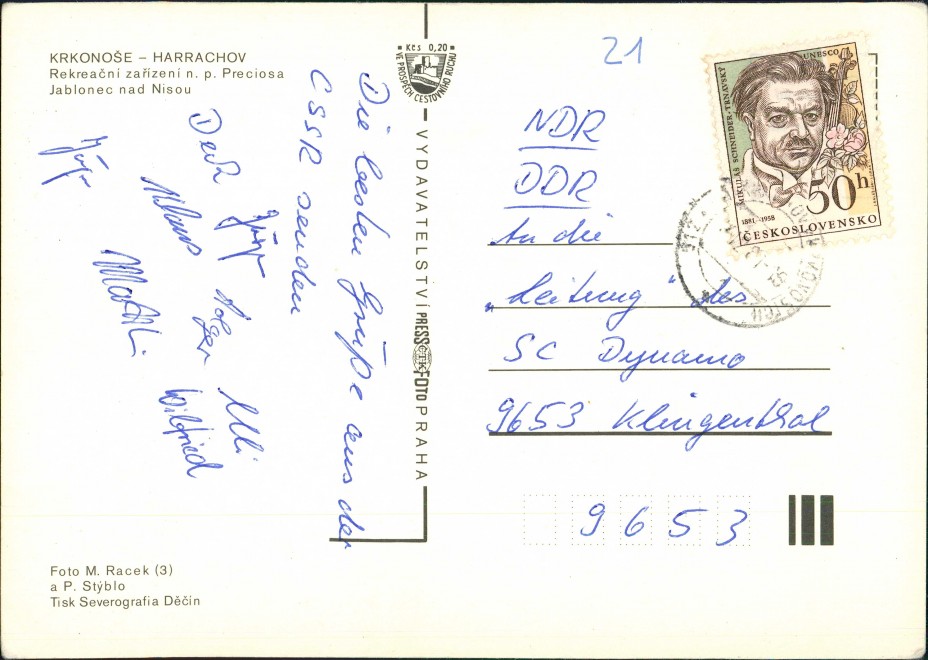 KRKONOŠE – HARRACHOV
Rekreační zařízení n. p. Preciosa
Jablonec nad Nisou
Kčs 0,20
VE PROSPĚCH CESTOVNÍHO RUCHU
VYDAVATELSTVÍ PRESSFOTO PRAHA
ČTK
Die besten Grüße aus der
ČSSR senden
Jürg
Klaus
Holger
Ulli
Matth.
Wilfried
21
NDR
DDR
An die
"Leitung" des
SC Dynamo
9653 Klingenthal
9653
MIKULÁŠ SCHNEIDER-TRNAVSKÝ
UNESCO
1881-1958
50h
ČESKOSLOVENSKO
Foto M. Racek (3)
a P. Stýblo
Tisk Severografia Děčín